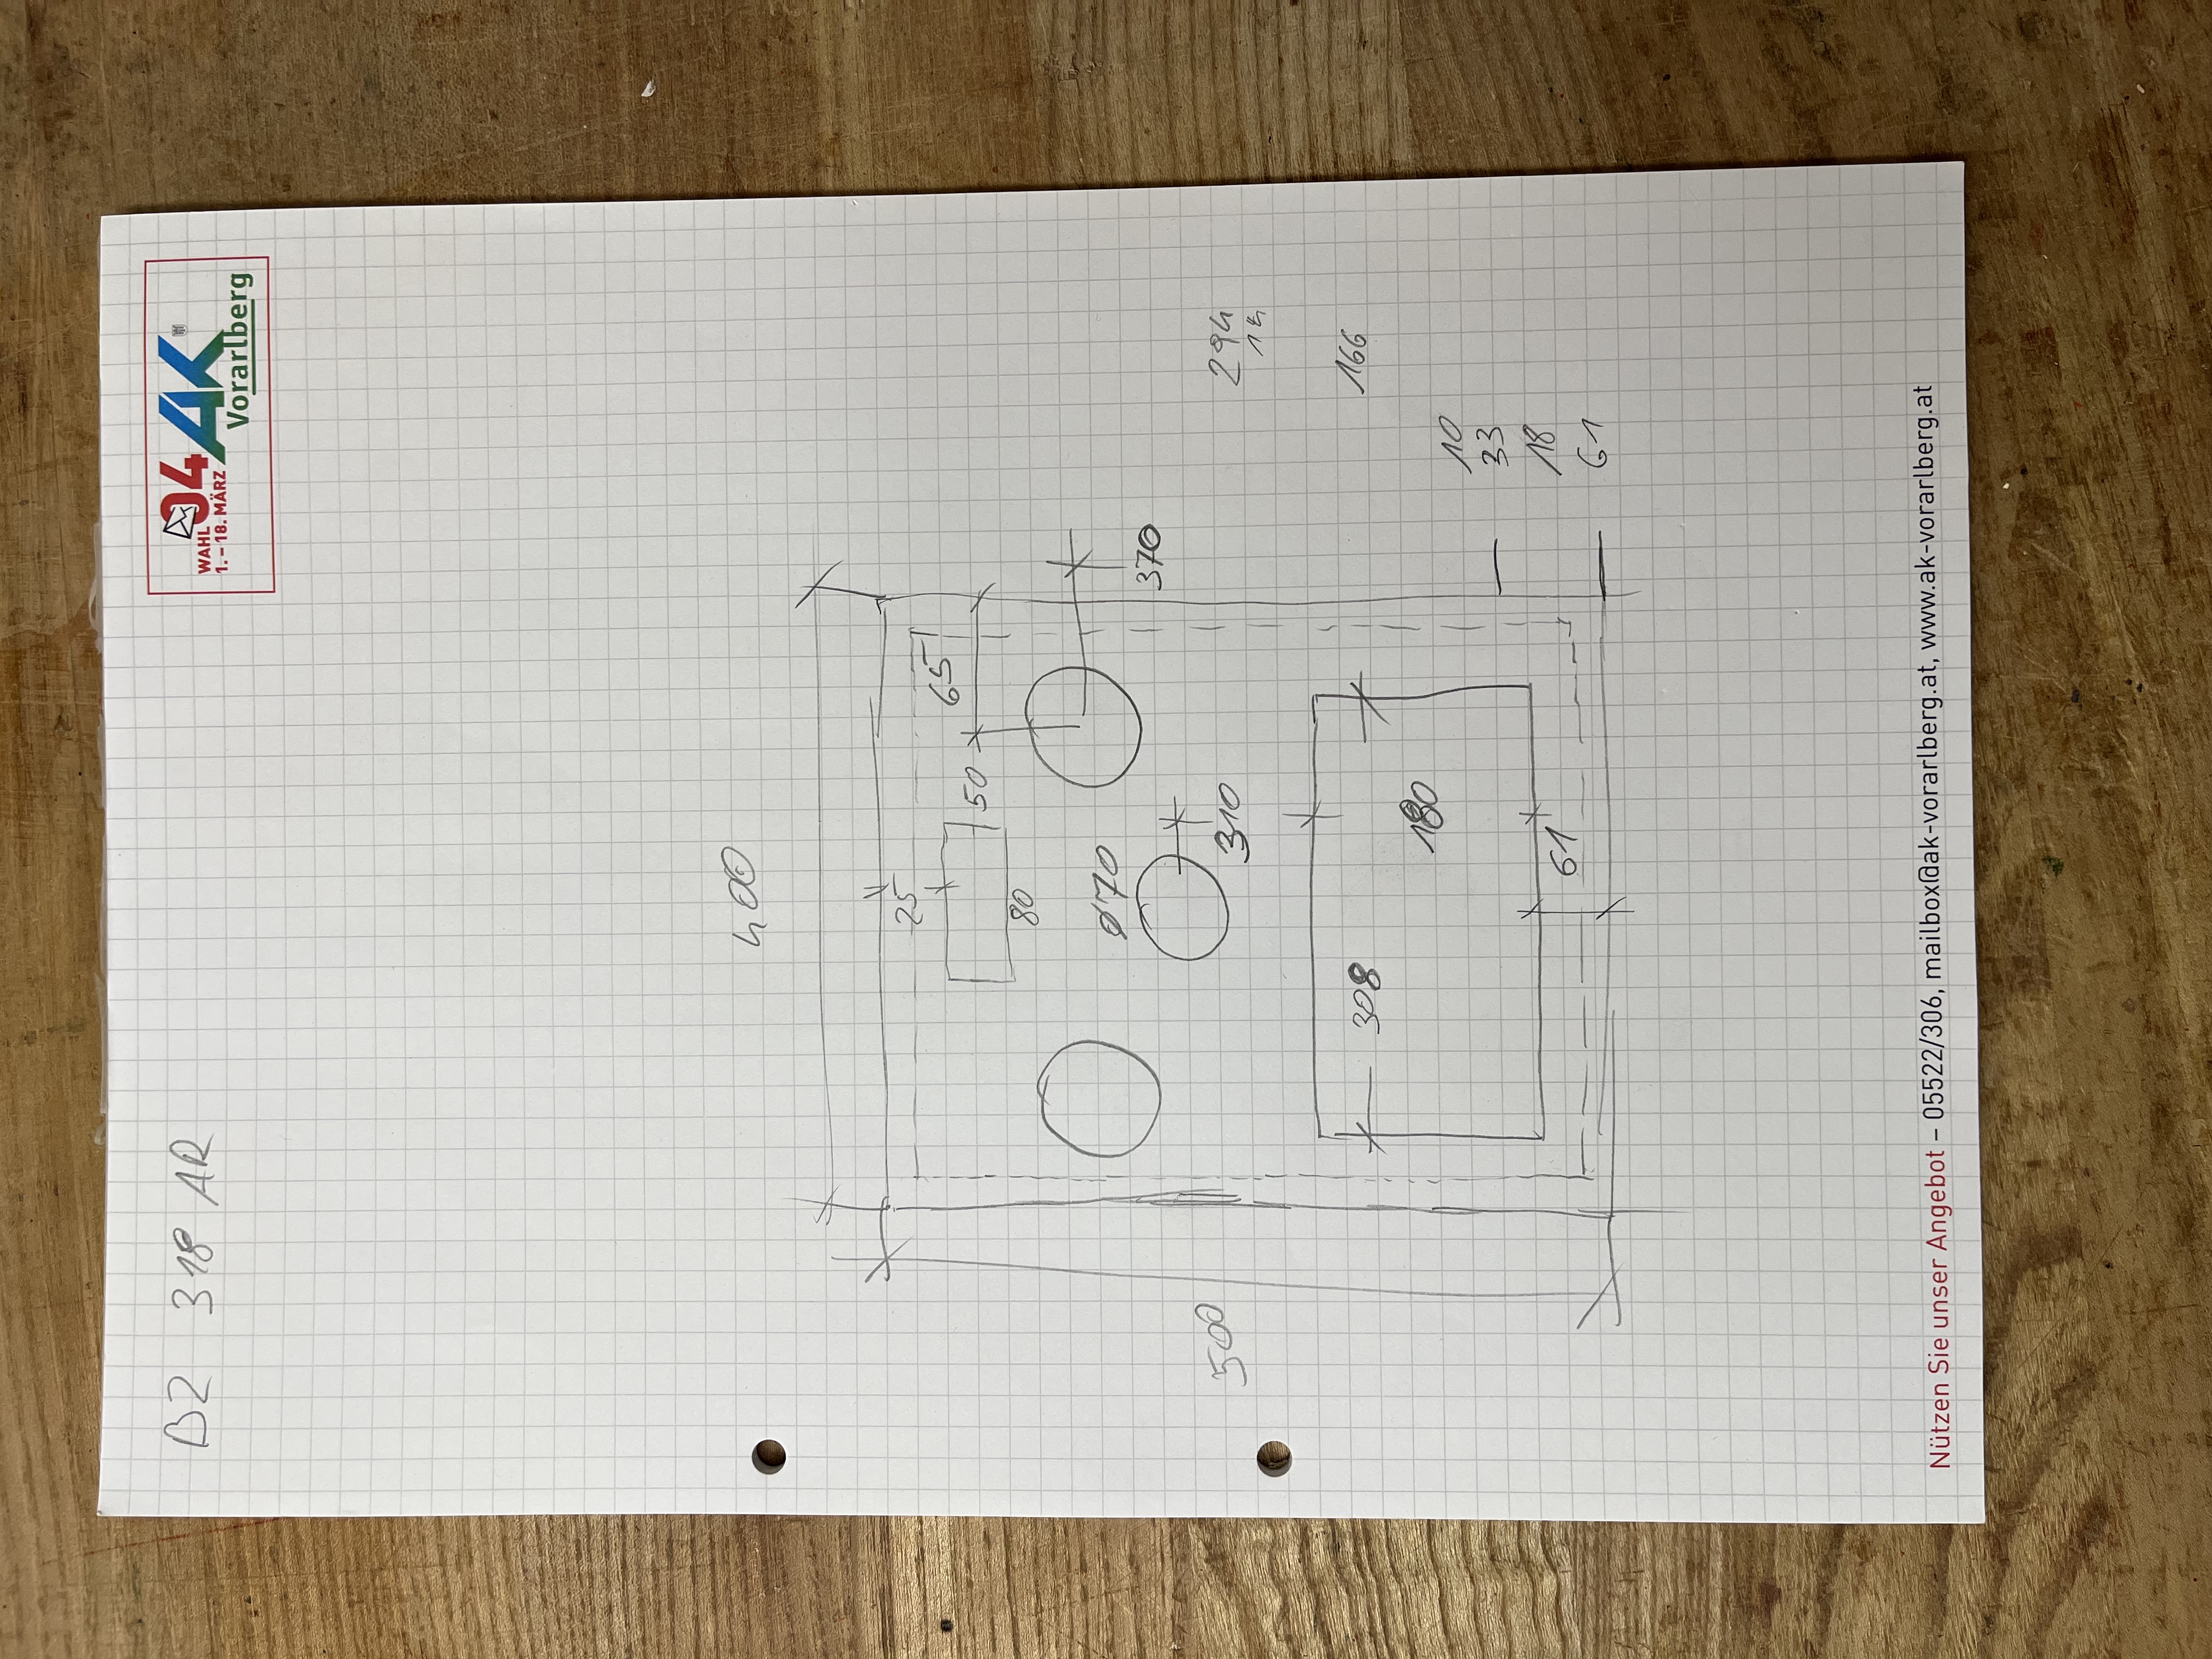 BZ 318 AR
WAHL 04 AK
1. – 18. MÄRZ
Vorarlberg
400
25
65
50
80
ø70
370
310
500
294
14
308
166
180
10
33
18
61
61
Nützen Sie unser Angebot – 05522/306, mailbox@ak-vorarlberg.at, www.ak-vorarlberg.at